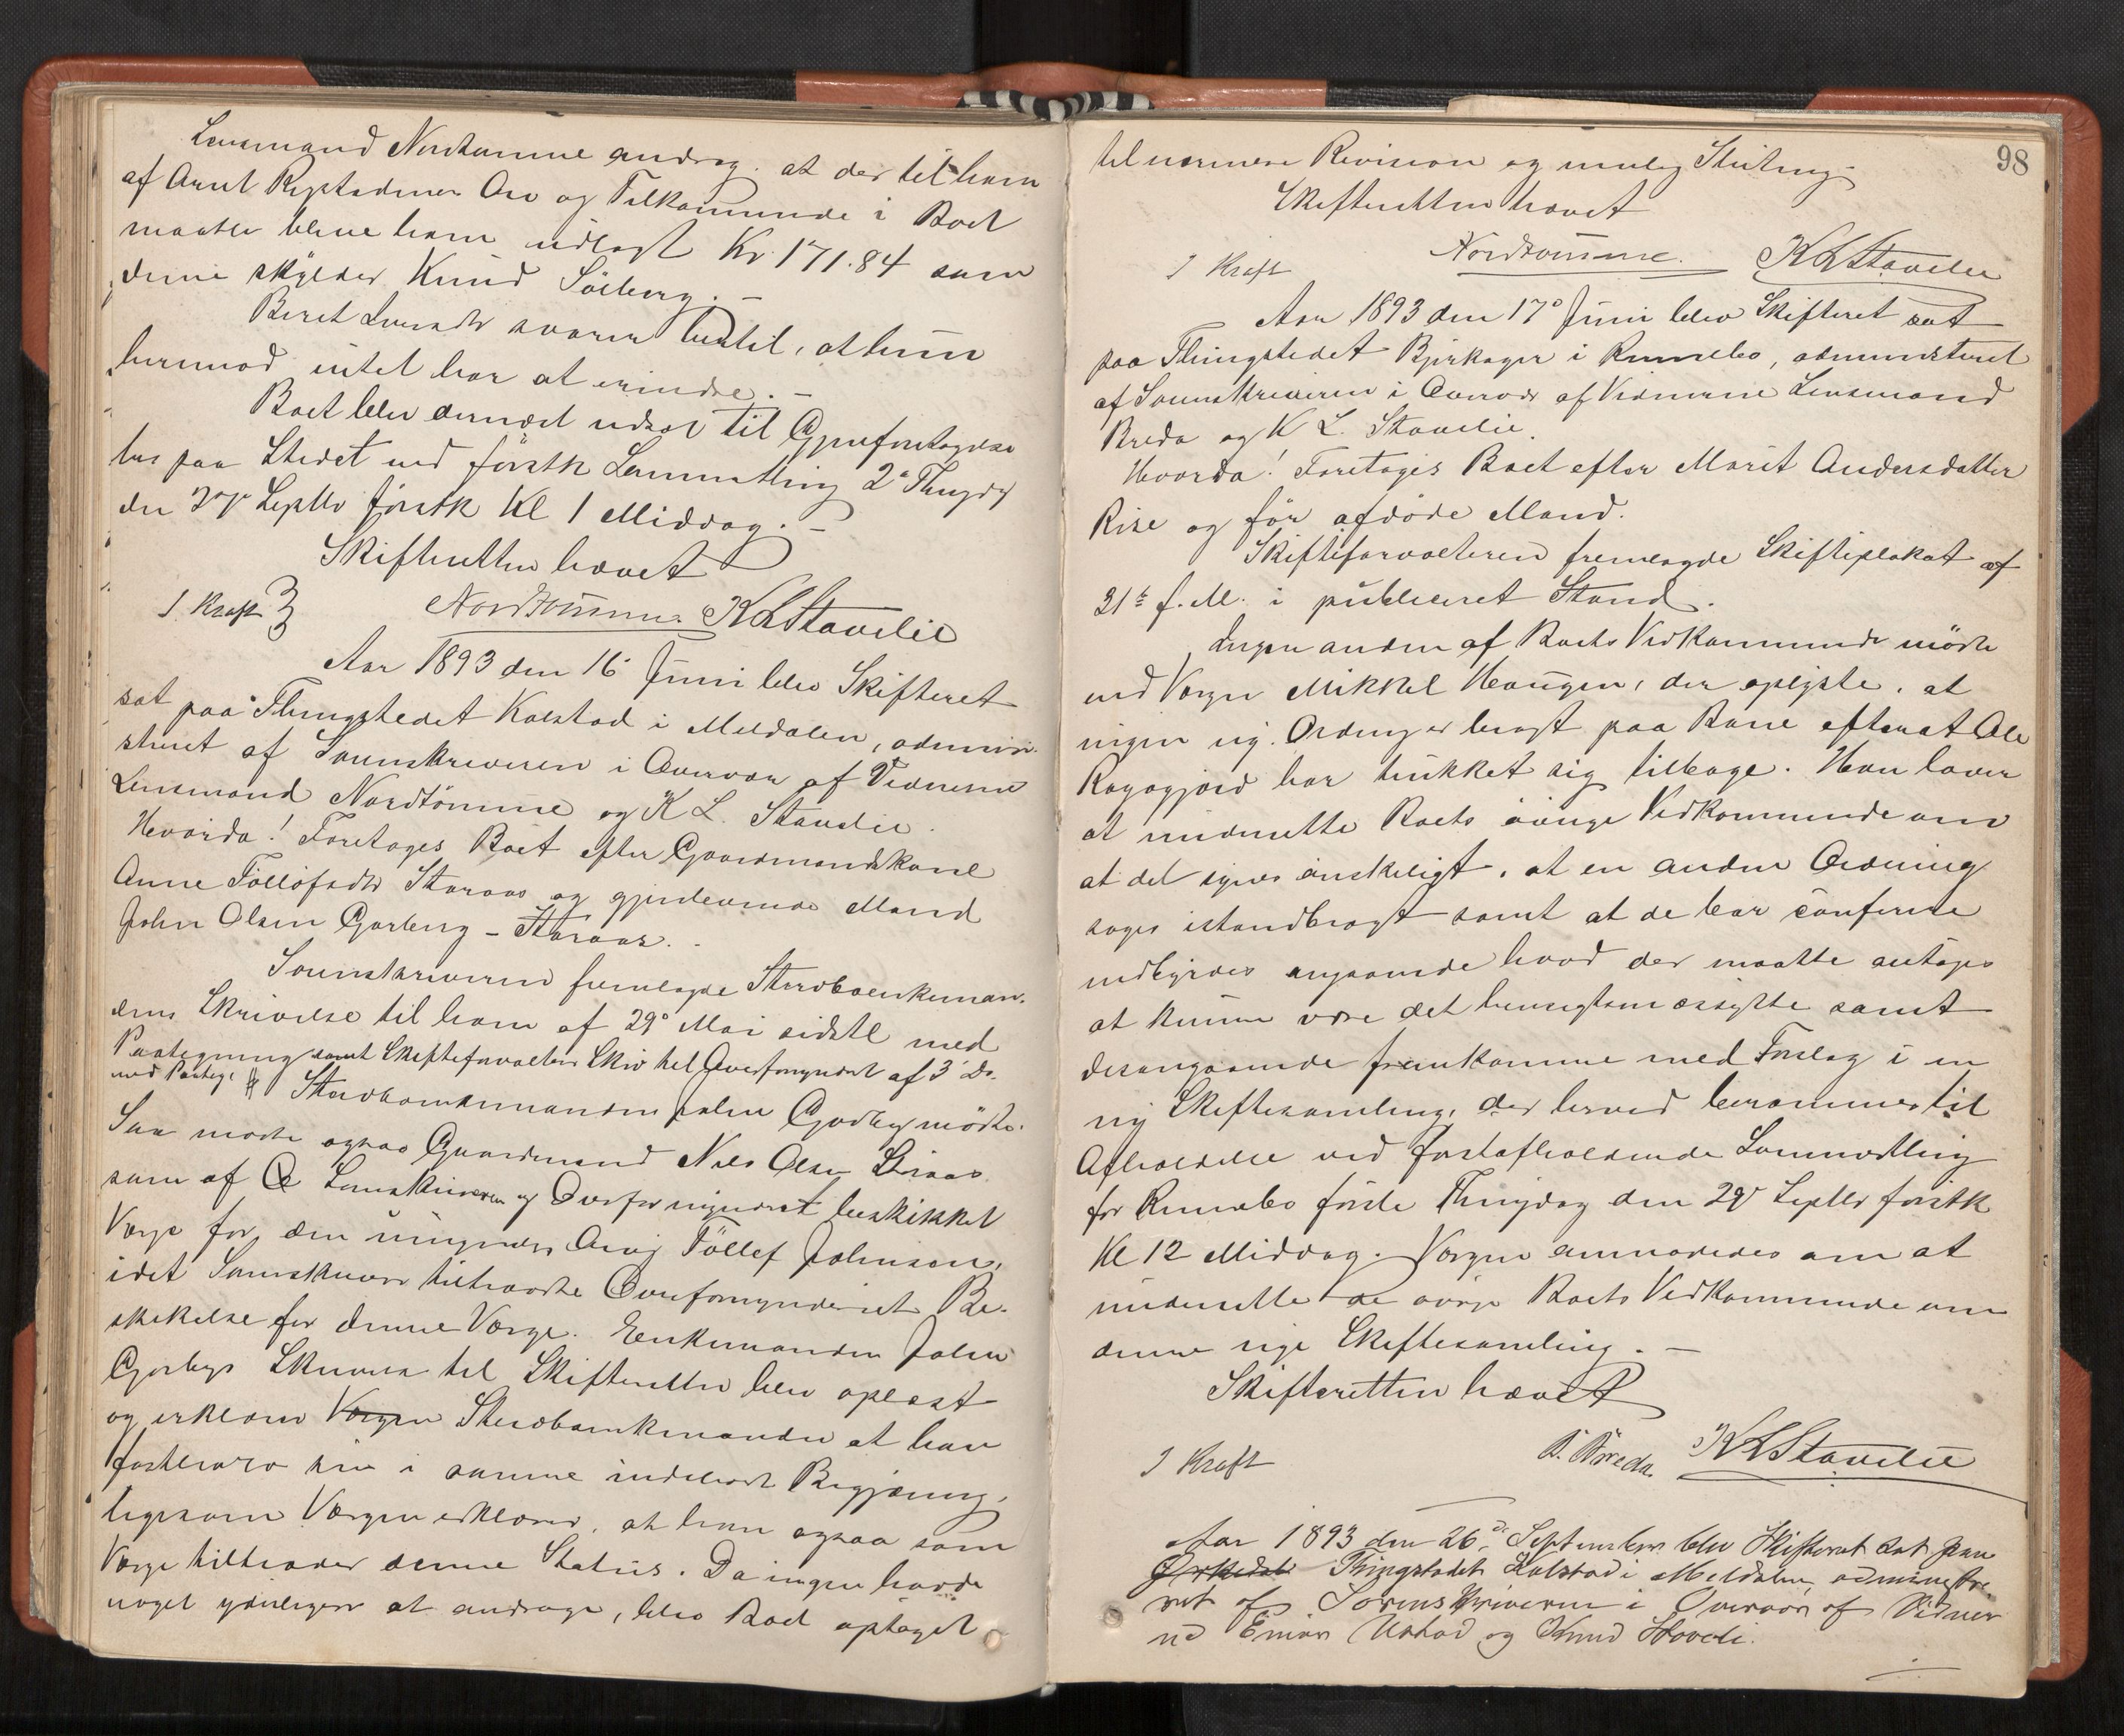 Lensmand Nordtømme androg, at der til ham
af Arnt Rigstadmoe Arv og Tilkommende i Boet
maatte blive ham udlagt Kr. 171.84 som
denne skylder Knud Söberg. –
Beret svarer hertil, at hun
hermod intet har at erindre. –
Boet blev dernæst udsat til Gjenforetagelse
her paa Stedet ved förstk 2den Thingdag
den Septbr förstk Kl 1 Middag. –
Skifteretten hævet
I. Kraft Nordtømme. K L Stavelie
Aar 1893 den 16 Juni blev Skifteret
sat paa Thingstedet Kalstad i Meldalen, admini-
streret af Sorenskriveren i Overvær af Vidnerne
Lensmand Nordtömme og K L. Stavelie.
Hvorda! Foretages Boet efter Gaardmandskone
Anne Föllöfsdtr Staraas og gjenlevende Mand
John Olsen Gorberg – Staraas. –
Sorenskriveren fremlagde Stervboenkeman-
dens Skrivelse til ham af 29de Mai sidstl med
Paategning samt Skifteforvalterens Skriv til Overformynderiet af 3 ds.
med Pategn # Stervboenkemanden John mödte.
Saa mödte ogsaa Gaardmand Nils Olsen
som af Sorenskriveren og Overformynderiet beskikket
Værge for den umyndige Arving Föllef Johnsen,
idet Sorenskriveren tiltraadte Overformynderiets Be-
skikkelse for denne Værge. Enkemanden John
Gorbergs Skrivelse til Skifteretten blev oplæst
og erklærer Værgen Stervboenkemanden at han
fastholder sin i samme indeholdte Begjæring,
ligesom Værgen erklærer, at han ogsaa som
Værge tiltræder denne Status. Da ingen havde
noget yderligere at andrage, blev Boet optaget
98
til nærmere Revision og mulig Slutning
Skifteretten hævet
I Kraft Nordtømme. K L Stavelie
Aar 1893 den 17de Juni blev Skifteret sat
paa Thingstedet Bjerkager i Rennebo, administreret
af Sorenskriveren i Overvær af Vidnerne Lensmand
Breda og K L. Stavelie.
Hvorda! Foretages Boet efter Marit Andersdatter
Rise og för afdöde Mand.
Skifteforvalteren fremlagde Skifteplakat af
31te f. M. i publiceret Stand.
Ingen anden af Boets Vedkommende mödte
end Værgen Mikkel Haugen, der oplyste, at
ingen ny Ordning er bragt paa Bane efterat Ole
har trukket sig tilbage. Han lover
at underrette Boets övrige Vedkommende om
at det synes önskeligt, at en anden Ordning
söges istandbragt samt at de bör conferere
indbyrdes angaaende hvad der maatte antages
at kunne være det hensigtsmæssigste samt
desangaaende fremkomme med Forslag i en
ny Skiftesamling, der herved berammes til
Afholdelse ved förstafholdende
for Rennebo förste Thingdag den 29de Septbr förstk
Kl 12 Middag. Værgen anmodedes om at
underrette de övrige Boets Vedkommende om
denne nye Skiftesamling. –
Skifteretten hævet
I Kraft B. Breda. K L Stavelie
Aar 1893 den 26de September blev Skifteret sat paa
Orkedal Thingstedet Kalstad i Meldalen, administre-
ret af Sorenskriveren i Overvær af Vidner
ne Einar og Knud Hoveli.